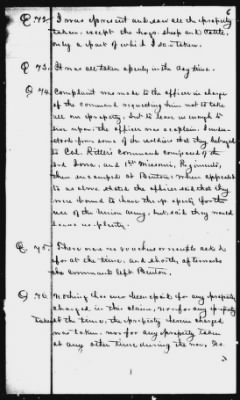 6
Q 72. I was present and saw all the property
taken, except the hogs, sheep and cattle,
only a part of which I saw taken.
Q 73. It was all taken openly in the day time.
Q 74. Complaint was made to the officer in charge
of the command requesting him not to take
all our property, but to leave us enough to
live upon; the officer was a captain. I under-
stood from some of the soldiers that they belonged
to Col. Ritter's Command composed of the
3rd Iowa, and 1st Missouri, Regiments,
then encamped at Benton: When appealed
to as above stated the officer said that they
were bound to have the property for the
use of the Union army, but said they would
leave us plenty.
Q 75. There were no vouchers or receipts asked
for at the time, and shortly afterwards
the command left Benton.
Q 76. Nothing has ever been paid for any property
charged in this claim, nor for any property
taken at the time, the property herein charged
was taken, nor for any property taken
at any other time during the war, &c.